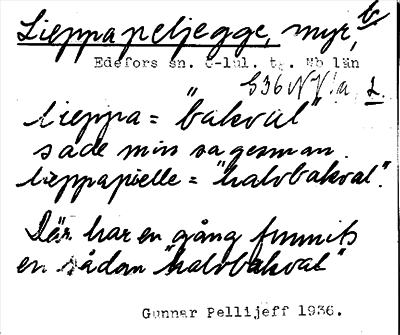 Lieppapeljegge, myr, b
Edefors sn. Ö-lul. tg. Nb län
S36NV:a, 2.
lieppa = "bakval"
sade min sagesman
lieppapielle = "halvbakval".
Där har en gång funnits
en sådan "halvbakval"
Gunnar Pellijeff 1936.